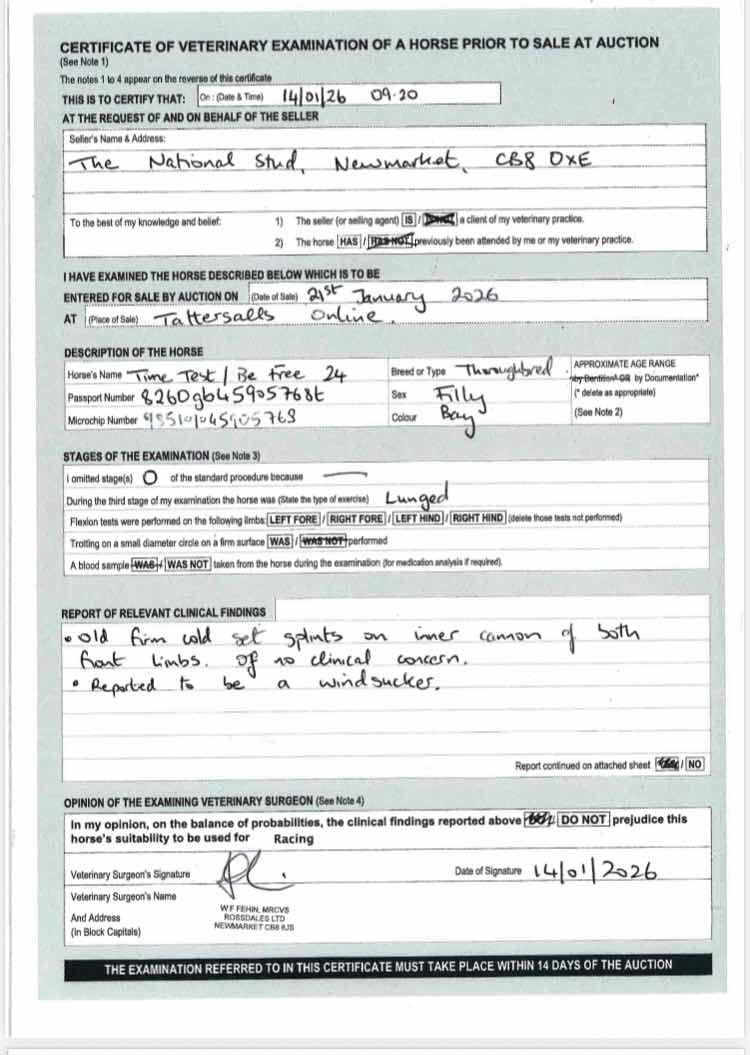 CERTIFICATE OF VETERINARY EXAMINATION OF A HORSE PRIOR TO SALE AT AUCTION
(See Note 1)
The notes 1 to 4 appear on the reverse of this certificate
THIS IS TO CERTIFY THAT: On : (Date & Time) 14/01/26 09.20
AT THE REQUEST OF AND ON BEHALF OF THE SELLER
Seller's Name & Address:
The National Stud, Newmarket, CB8 0XE
To the best of my knowledge and belief: 1) The seller (or selling agent) IS / a client of my veterinary practice.
2) The horse HAS / HAS NOT previously been attended by me or my veterinary practice.
I HAVE EXAMINED THE HORSE DESCRIBED BELOW WHICH IS TO BE
ENTERED FOR SALE BY AUCTION ON (Date of Sale) 21st January 2026
AT (Place of Sale) Tattersalls Online.
DESCRIPTION OF THE HORSE
Horse's Name Time Test / Be Free 24 Breed or Type Thoroughbred. APPROXIMATE AGE RANGE
*by Dentition* OR by Documentation*
Passport Number 8260gb45905768t Sex Filly (* delete as appropriate)
Microchip Number 985101045905768 Colour Bay (See Note 2)
STAGES OF THE EXAMINATION (See Note 3)
I omitted stage(s) O of the standard procedure because
During the third stage of my examination the horse was (State the type of exercise) Lunged
Flexion tests were performed on the following limbs: LEFT FORE / RIGHT FORE / LEFT HIND / RIGHT HIND (delete those tests not performed)
Trotting on a small diameter circle on a firm surface WAS / WAS NOT performed
A blood sample WAS / WAS NOT taken from the horse during the examination (for medication analysis if required).
REPORT OF RELEVANT CLINICAL FINDINGS
• Old firm cold set splints on inner cannon of both
front limbs. Of no clinical concern.
• Reported to be a windsucker.
Report continued on attached sheet / NO
OPINION OF THE EXAMINING VETERINARY SURGEON (See Note 4)
In my opinion, on the balance of probabilities, the clinical findings reported above DO NOT prejudice this
horse's suitability to be used for Racing
Veterinary Surgeon's Signature Date of Signature 14/01/2026
Veterinary Surgeon's Name
And Address
(in Block Capitals)
W F FEHIN, MRCVS
ROSSDALES LTD
NEWMARKET CB8 8JS
THE EXAMINATION REFERRED TO IN THIS CERTIFICATE MUST TAKE PLACE WITHIN 14 DAYS OF THE AUCTION